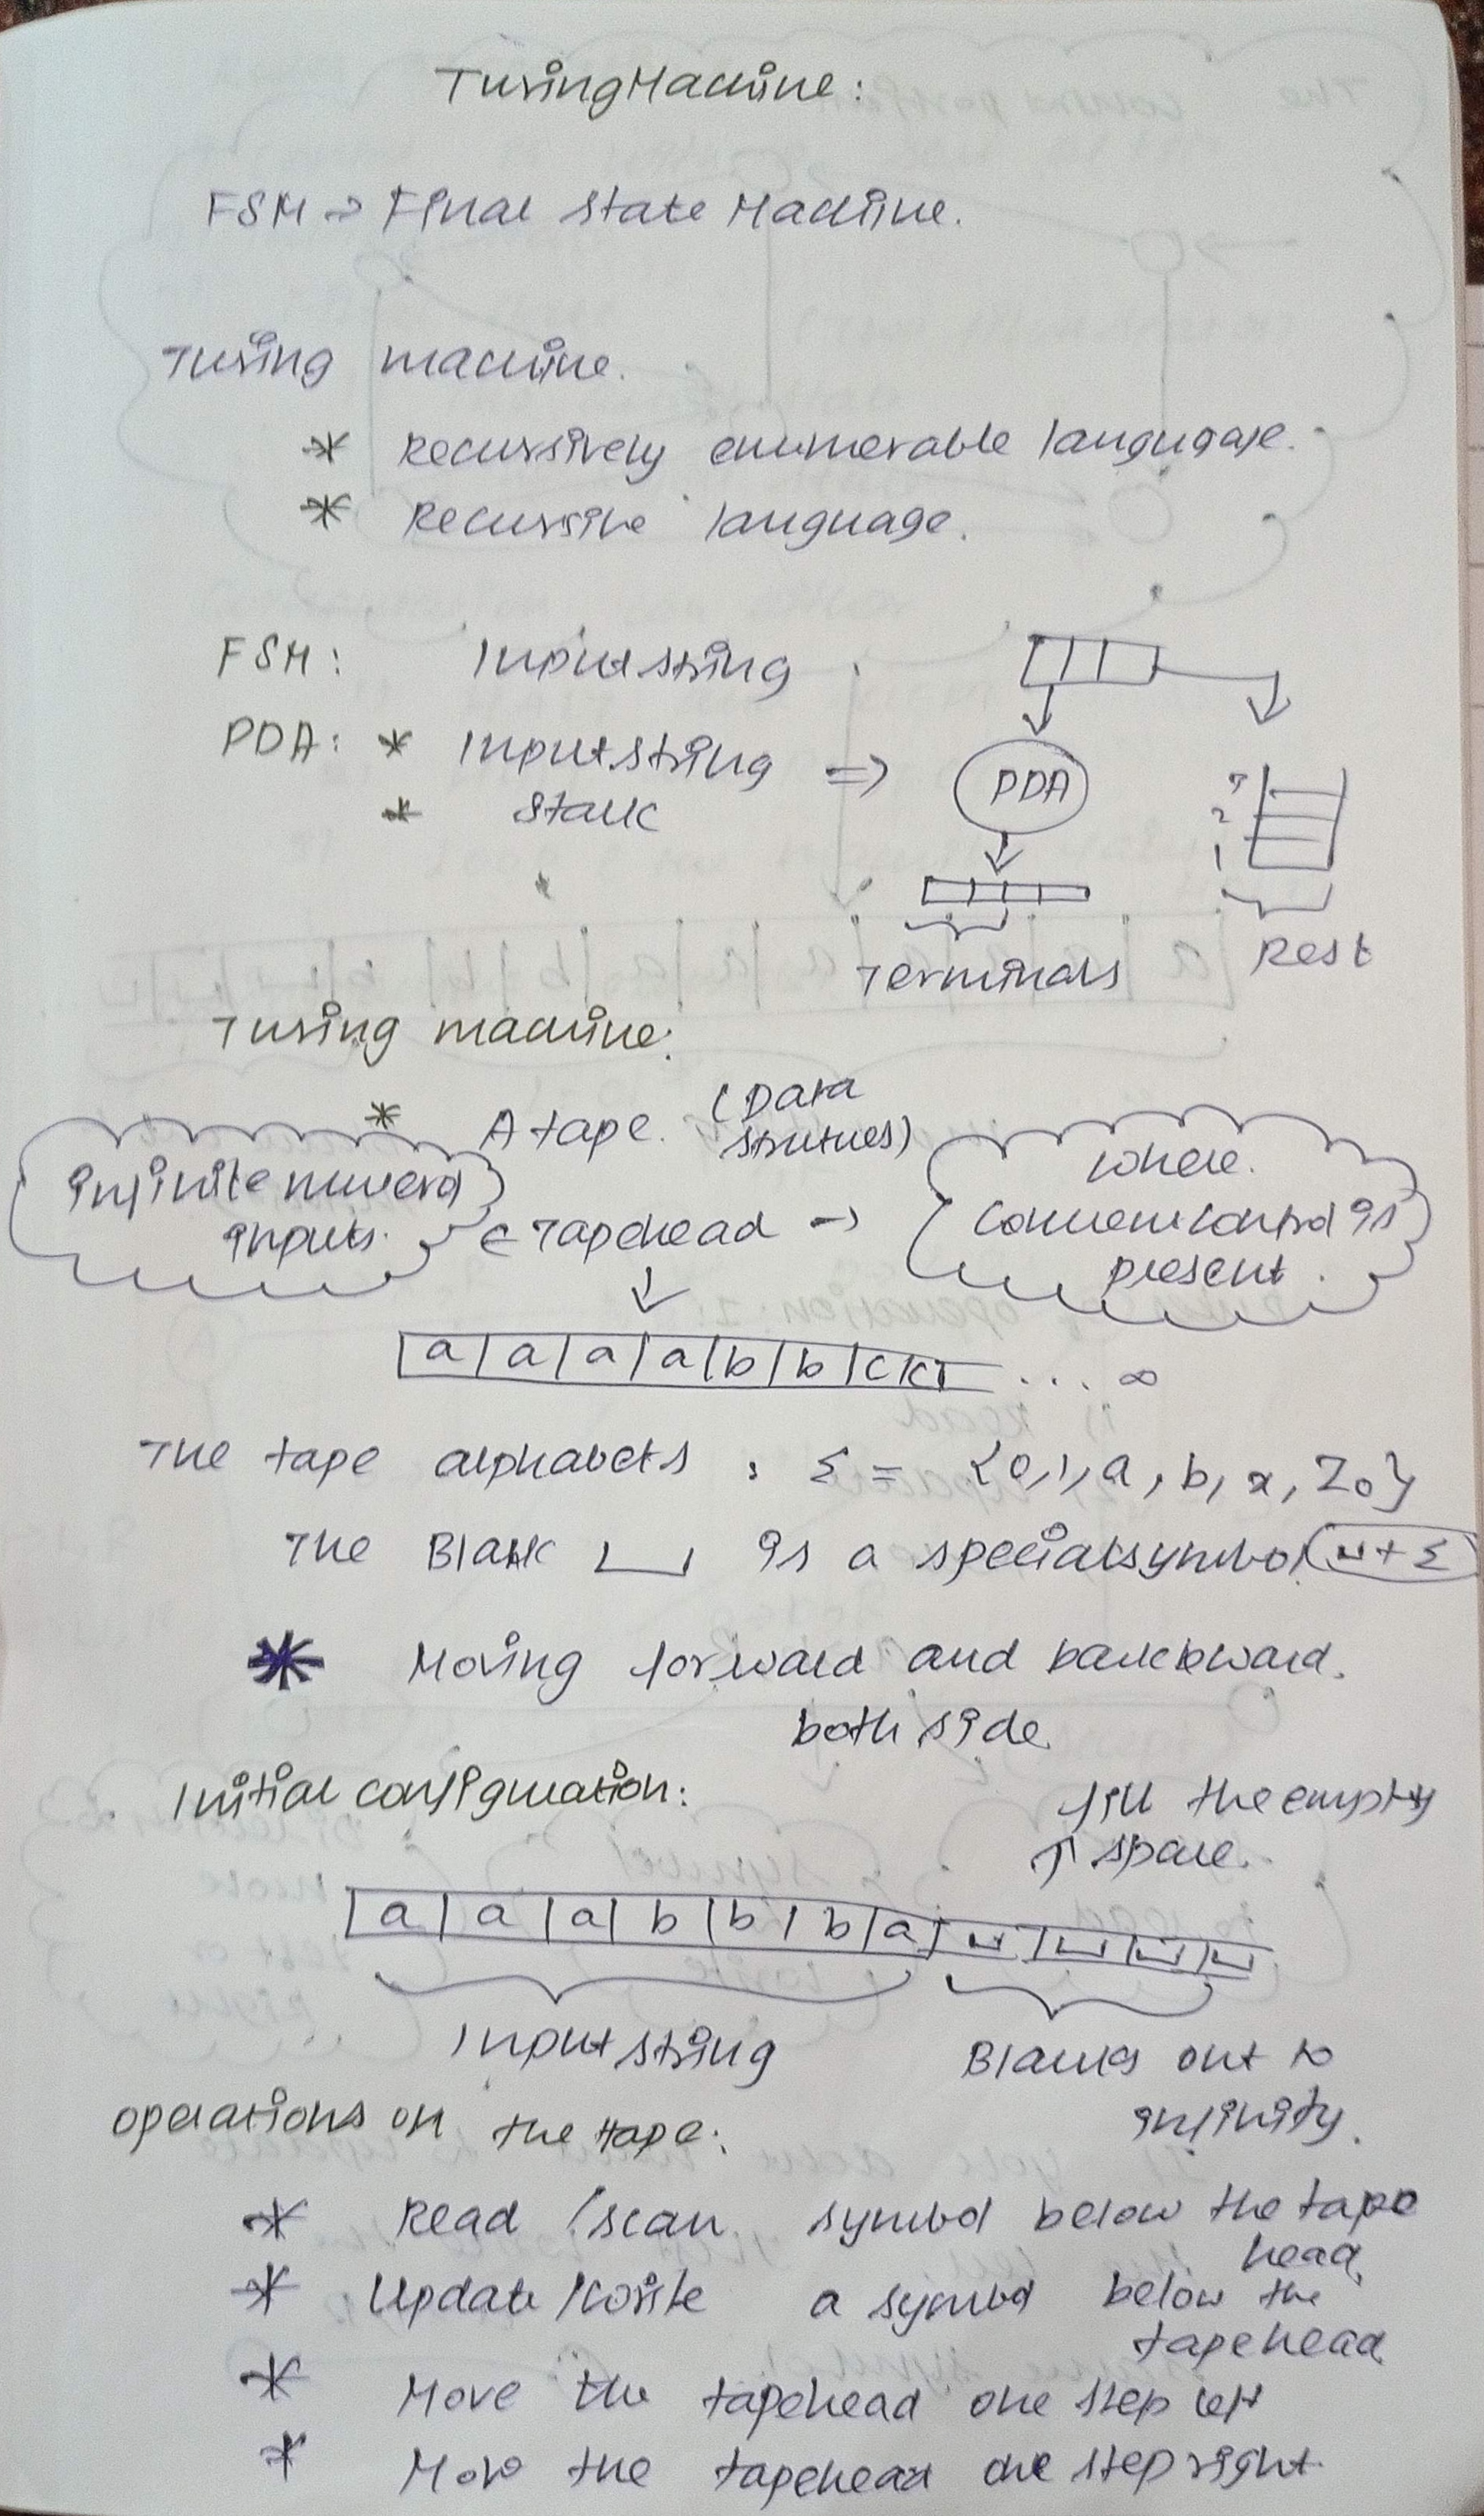 Turing Machine:
FSM → Final State Machine.
Turing machine.
* Recursively enumerable langugage.
* Recursive language.
FSM: Input string
PDA: * Input string ⇒ PDA
* Stack
3
2
1
Terminals
Rest
Turing machine:
* A tape. (Data
strutures)
infinite
inputs.
← Tapehead →
where.
is
present.
a a a a b b c ... ∞
The tape alphabets : Σ = {0,1,a,b,x,Z0}
The Blank ⊔ is a special symbol ⊔ + Σ
* Moving forward and backbward.
both side.
Initial configuration:
fill the empty
↑ space.
a a a b b b a ⊔ ⊔ ⊔ ⊔
Input string
Blanks out to
infinity.
operations on the tape:
* Read /scan symbol below the tape
head.
* Update /write a symbol below the
tapehead
* Move the tapehead one step left
* Move the tapehead one step right